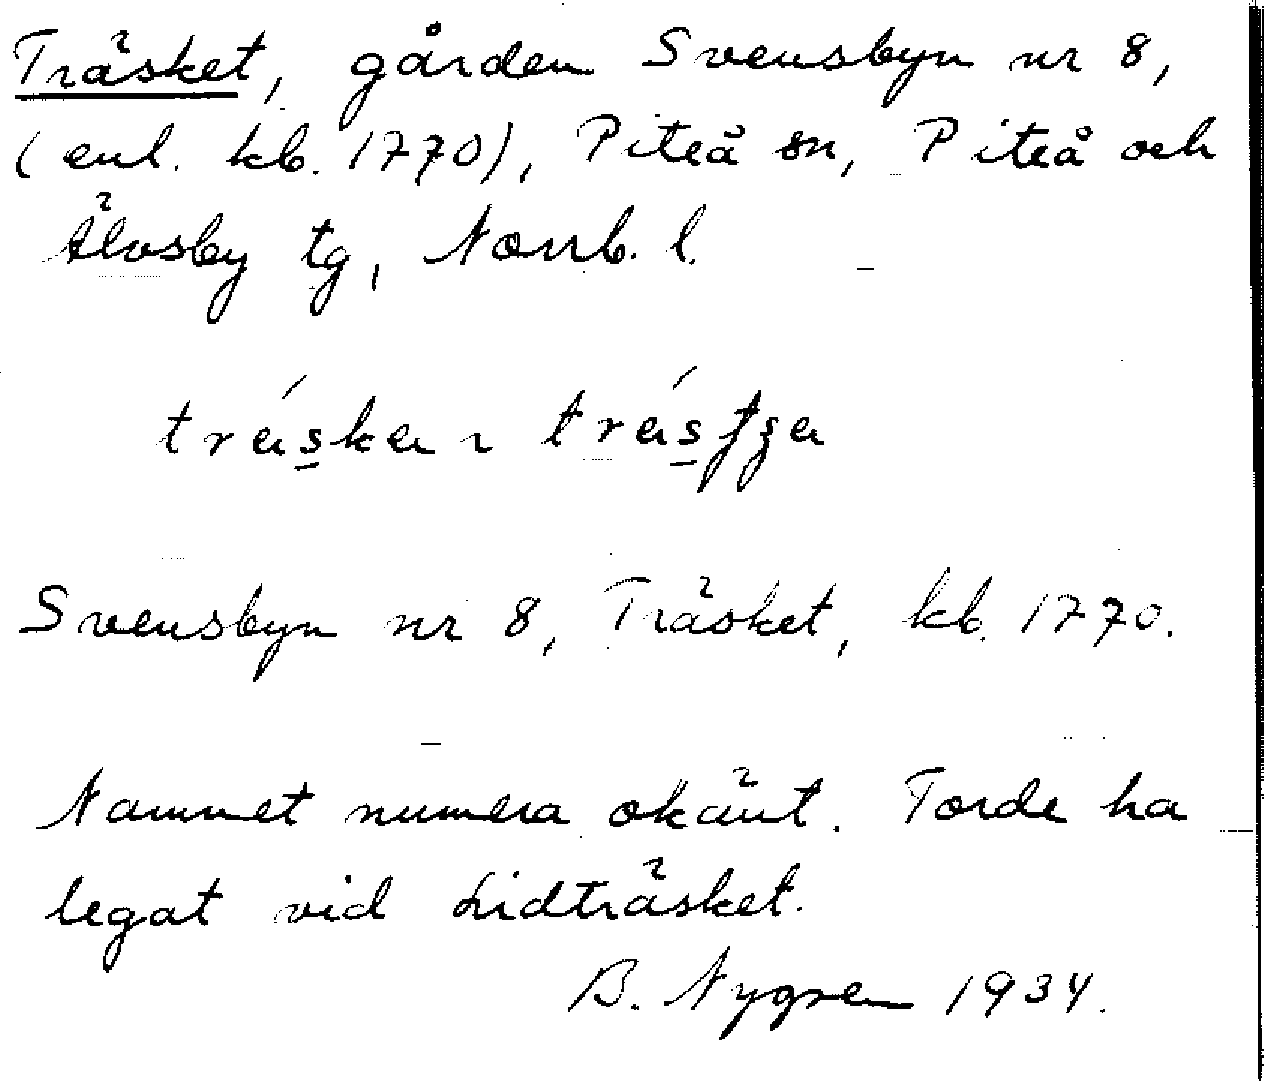 Träsket, gården Svensbyn nr 8,
(enl. kb. 1770), Piteå sn, Piteå och
Älvsby tg, Norrb. l.
Svensbyn nr 8, Träsket, kb. 1770.
Namnet numera okänt. Torde ha
legat vid Lidträsket.
B. Nygren 1934.